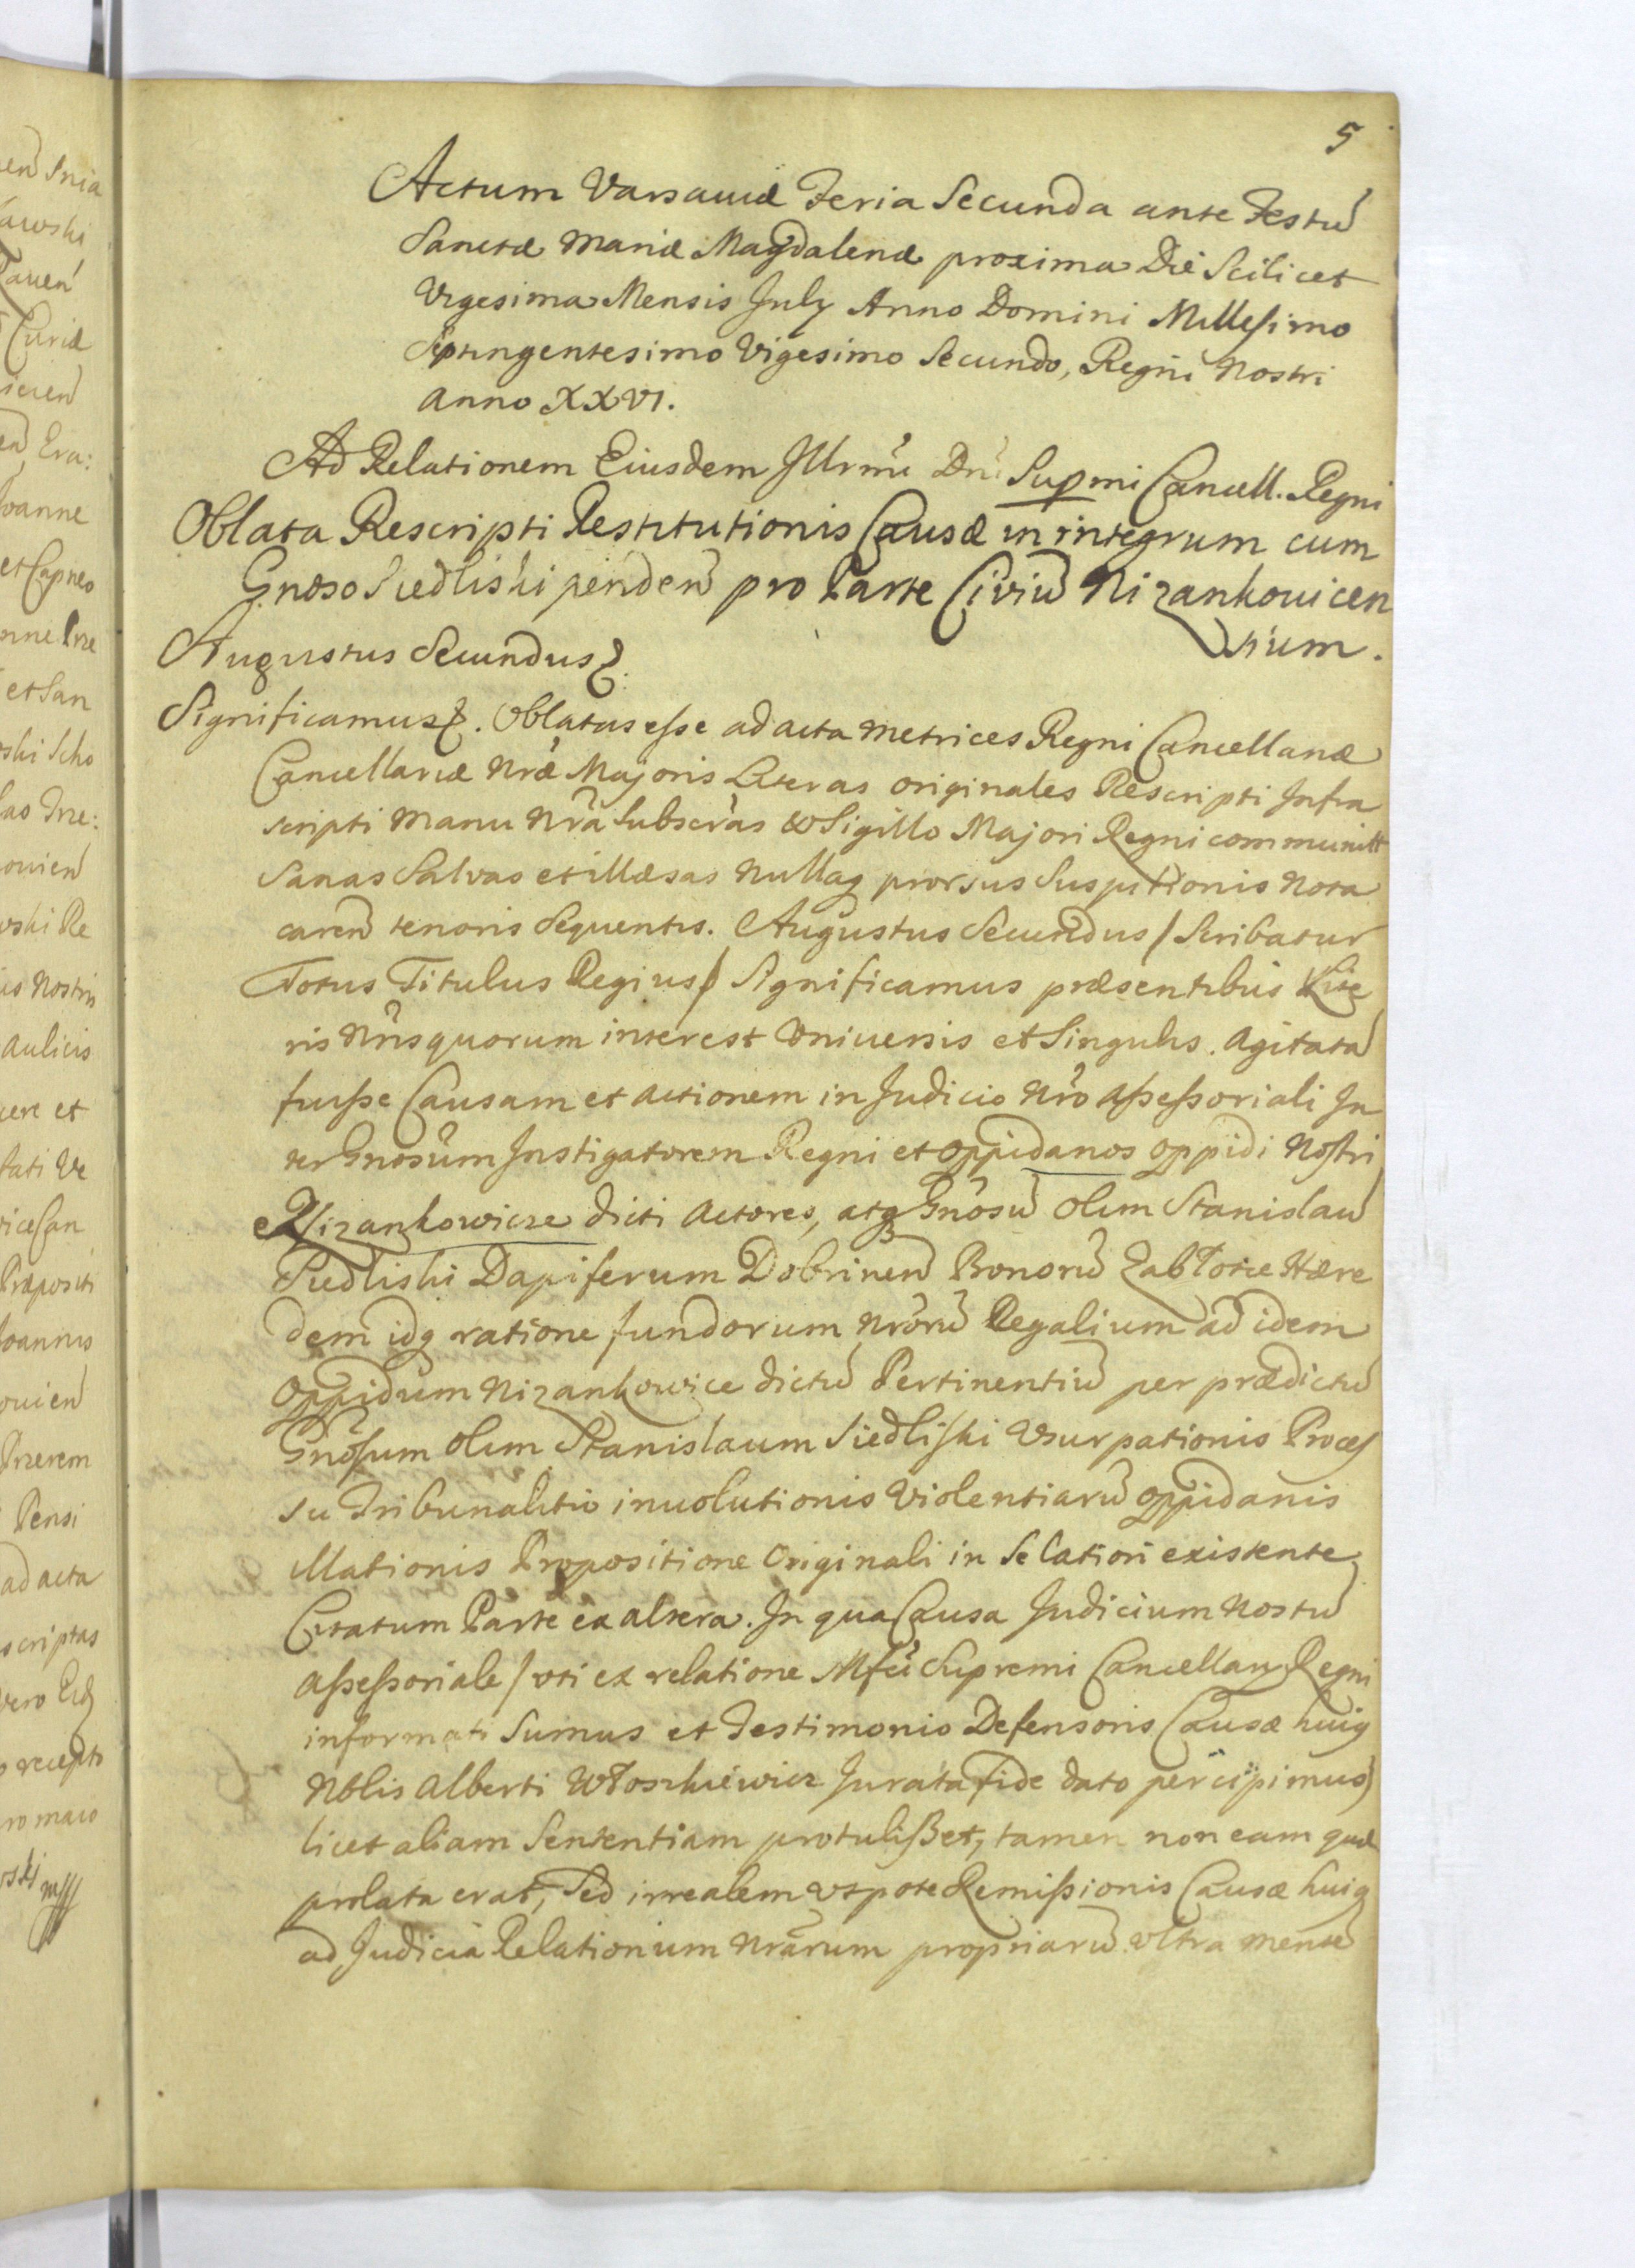 5
Actum Varsaviæ Feria Secunda ante Festũ
Sanctæ Mariæ Magdalenæ proxima Die Scilicet
Vigesima Mensis July Anno Domini Millesimo
Septingentesimo Vigesimo Secundo, Regni Nostri
Anno XXVI.
Ad Relationem Eiusdem Illrmi Dni Supmi Cancell. Regni
Oblata Rescripti Restitutionis Causæ in integrum cum
Gnoso Siedliski penden pro Parte Civiũ Nizankovicen
sium.
Augustus Secundus
Significamus. Oblatas esse ad acta Metrices Regni Cancellariæ
Cancellariæ Nræ Majoris Literas originales Rescripti Infra
scripti Manu Nrã Subscrãs et Sigillo Majori Regni communitt
Sanas Salvas et illæsas Nullaq prorsus Suspitionis Nota
caren tenoris Sequentis. Augustus Secundus / Scribatur
Totus Titulus Regius / Significamus præsentibus Lite
ris Nris quorum interest Vniuersis et Singulis. Agitatã
fuisse Causam et actionem in Judicio Nro Assessoriali In
ter Gnosum Instigatorem Regni et oppidanos oppidi Nostri
Nizankowicze dicti Actores, atq Gnosũ olim Stanislaũ
Siedliski Dapiferum Dobrinen Bonorũ Zabłotce Hære
dem idq ratione fundorum Nrorũ Regalium ad idem
Oppidum Nizankowice dictũ Pertinentiũ per prædictũ
Gnosum olim Stanislaum Siedliski Vsurpationis Proces
su Tribunalitio inuolutionis Violentiarũ oppidanis
Illationis Propositione Originali in Se Latiori existente
Citatum Parte ex altera. In qua Causa Judicium Nostrũ
Assessoriale / vti ex relatione Mfci Supremi Cancellary Regni
informati Sumus et Testimonio Defensoris Causæ huiq
Nblis Alberti Włoszkiewicz Jurata fide dato percipimus)
licet aliam Sententiam protulisset, tamen non eam quæ
prolata erat, Sed irrealem vtpote Remissionis Causæ huiq
ad Judicia Relationum Nrarum propriarũ vltra mentẽ